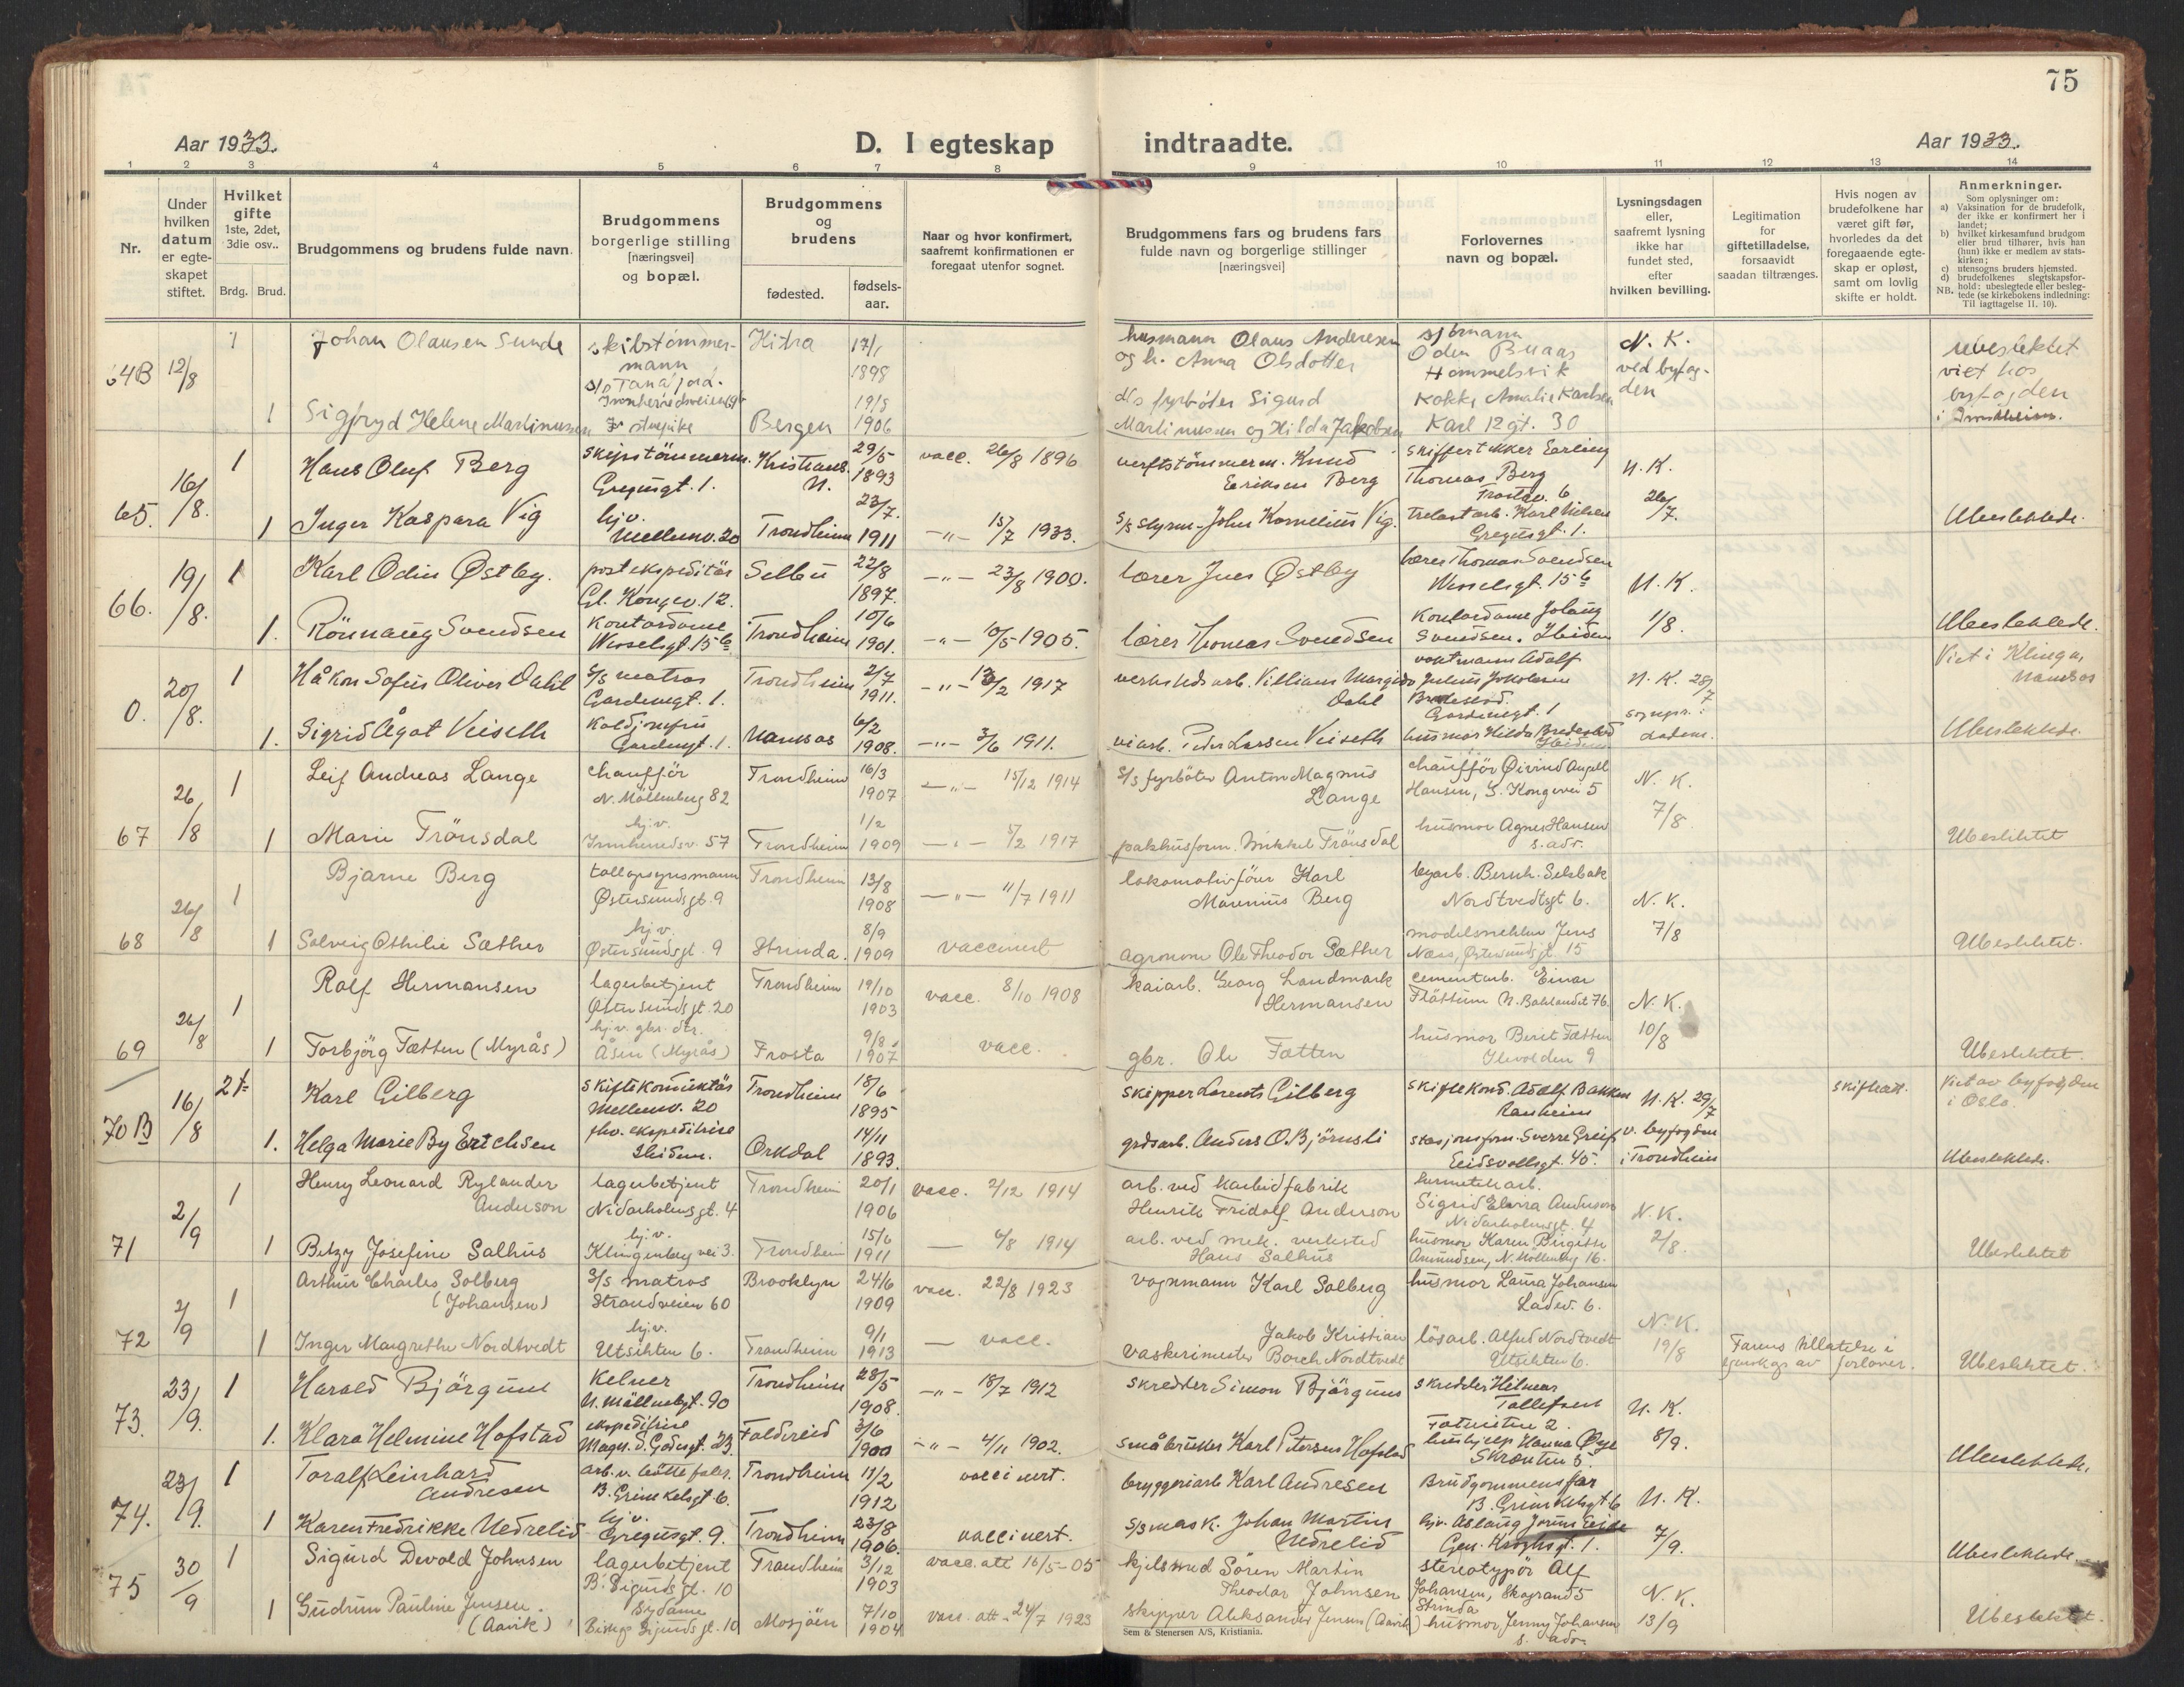 75
Aar 1933.
D. I egteskap indtraadte.
Aar 1933.
1 2 3 4 5 6 7 8 9 10 11 12 13 14
Nr.
Under hvilken datum er egte-skapet stiftet.
Hvilket gifte 1ste, 2det, 3die osv..
Brdg. Brud.
Brudgommens og brudens fulde navn.
Brudgommens borgerlige stilling [næringsvei] og bopæl.
Brudgommens og brudens
fødested.
fødsels-aar.
Naar og hvor konfirmert, saafremt konfirmationen er foregaat utenfor sognet.
Brudgommens fars og brudens fars fulde navn og borgerlige stillinger [næringsvei]
Forlovernes navn og bopæl.
Lysningsdagen eller, saafremt lysning ikke har fundet sted, efter hvilken bevilling.
Legitimation for giftetilladelse, forsaavidt saadan tiltrænges.
Hvis nogen av brudefolkene har været gift før, hvorledes da det foregaaende egte-skap er opløst, samt om lovlig skifte er holdt.
Anmerkninger.
Som oplysninger om:
a) Vaksination for de brudefolk, der ikke er konfirmert her i landet;
b) hvilket kirkesamfund brudgom eller brud tilhører, hvis han (hun) ikke er medlem av stats-kirken;
c) utensogns bruders hjemsted.
d) brudefolkenes slegtskapsfor-hold: ubeslegtede eller besleg-tede (se kirkebokens indledning: NB. Til iagttagelse II. 10).
64B 12/8 1 Johan Olausen Sunde skibstømmer-mann Hitra 17/1 1898 husmann Olaus Andersen og h. Anna Olsdotter sjömann Oden Buaas Hommelsvik N. K. ved byfog-den ubeslektet viet hos byfogden i Trondheim.
1 Sigfryd Helene Martinussen Bergen 19/8 1906 d/s fyrböter Sigurd Martinussen og Hilda Jakobsen Kokke Amalie Karlsen Karl 12 gt. 30
65. 16/8. 1 Hans Oluf Berg skipstömmerm. Gregusgt. 1. Kristians. N. 29/5 1893 vacc. 26/8 1896 verftstömmerm. Knud Eriksen Berg skiffertekker Erling Thomas Berg Frostav. 6 N. K. 26/7.
1 Inger Kaspara Vig hjv. Mellemv. 20 Trondheim 23/7. 1911 —"— 15/7 1933. s/s styrm. John Kornelius Vig. trelastarb. Karl Nilsen Gregusgt. 1. Ubeslektede.
66. 19/8. 1 Karl Odin Østby. postekspeditör Gl. Kongev. 12. Selbu 22/8 1897. —"— 23/8 1900. lærer Jens Østby lærer Thomas Svendsen Wesselsgt. 15 b N. K.
1. Rönnaug Svendsen Kontordame Wesselsgt. 15 b Trondheim 10/6 1901. —"— 10/5 1905. lærer Thomas Svendsen Kontordame Jolaug Svendsen. Ibidem 1/8. Ubeslektede.
0. 20/8. 1 Håkon Sofus Oliver Dahl s/s matros Gardemgt. 1. Trondheim 2/7 1911. —"— 13/2 1917 verkstedsarb. Villians Margido Dahl vaktmann Adolf Julius Jokobsen Gardemgt. 1 N. K. 28/7 Viet i Klinga, Namsos
1. Sigrid Ågot Veiseth Koldjomfru Gardemgt. 1. Namsos 6/2 1908. —"— 3/6 1911. viarb. Peder Larsen Veiseth husmor Hilda Bredesved Ibidem Ubeslektede.
67 26/8 1 Leif Andreas Lange chauffør N. Möllenberg 82 Trondheim 16/3 1907 —"— 15/12 1914 s/s fyrböter Anton Magnus Lange chauffør Øivind Angell Hansen, G. Kongevei 5 N. K. 7/8
1 Marie Trönsdal hjv. Innherredsv. 57 Trondheim 1/2 1909 —"— 5/2 1917 pakhusform. Mikkel Trönsdal husmor Agnes Hansen s. adr. Ubeslektet
68 26/8 1 Bjarne Berg tollopsynsmann Østersundsgt. 9 Trondheim 13/8 1908 —"— 11/7 1911 lokomotivförer Karl Marenius Berg byarb. Bernh. Selsbak Nordtvedtsgt 6. N. K. 7/8
1 Solveig Othilie Sæther hjv. Østersundsgt. 9 Strinda. 8/9 1909 vaccinert agronom Ole Theodor Sæther modelsnekker Jens Næss, Østersundsgt. 15 Ubeslektet.
69 26/8 1 Rolf Hermansen lagerbetjent Østersundsgt. 20 Trondheim 19/10 1903 vacc. 8/10 1908 kaiarb. Georg Landmark Hermansen cementarb. Einar Flåttum N. Baklandet 76 N. K. 10/8
1 Torbjörg Fætten (Myrås) hjv. gbr. dtr. Åsen (Myrås) Frosta 9/8. 1907 vacc. gbr. Ole Fætten husmor Beret Fætten Ilevolden 9 Ubeslektet.
70 B 16/8 2t Karl Gilberg skiftekonduktør Mellemv. 20 Trondheim 18/6 1895 skipper Lorents Gilberg skiftekond. Adolf Bakken Ranheim N. K. 29/7 v. byfogden i Trondheim skiftealt. Viet av byfogden i Oslo.
1. Helga Marie By Erichsen fhv. ekspeditrise Ibidem. Orkdal 14/11 1893. grdsarb. Anders O. Björnsli stasjonsform. Sverre Greiff Eidsvollsgt. 45. Ubeslektede.
71 2/9 1 Henry Leonard Rylander Anderson lagerbetjent Nidarholmsgt. 4 Trondheim 20/1 1906 vacc. 2/12 1914 arb. ved karbidfabrik Henrik Fridolf Anderson hermetikarb. Sigrid Elvira Anderson Nidarholmsgt. 4 N. K. 2/8.
1 Betzy Josefine Salhus hjv. Klingenberg vei 3. Trondheim 15/6 1911 — 6/8 1914 arb. ved mek. verksted Hans Salhus husmor Karen Birgitte Amundsen, N. Möllenberg 16. Ubeslektet
72 2/9 1 Arthur Charles Solberg (Johansen) s/s matros Strandveien 60 Brooklyn 24/6 1909 vacc. 22/8 1923 vognmann Karl Solberg husmor Laura Johansen Ladev. 6. N. K. 19/8
1 Inger Margrethe Nordtvedt hjv. Utsikten 6. Trondheim 9/1 1913 — vacc. Jakob Kristian vaskerimester Borch Nordtvedt lösarb. Alfred Nordtvedt Utsikten 6. Farens tillatelse i egensk. av forlover. Ubeslektet.
73. 23/9. 1 Harald Björgum Kelner N. Möllenbgt. 90 Trondheim 28/5 1908. —"— 18/7 1912 skredder Simon Björgum skredder Hilmar Tollefsen N. K. 8/9.
1. Klara Helmine Hofstad ekspeditrise Magn. d. Godesgt. 23. Foldereid 3/6 1900 —"— 4/11 1902. småbruker Karl Petersen Hofstad hushjelp Hanna Øye Skrænten 5. Ubeslektede.
74. 23/9. 1 Toralf Leinhard Andresen arb. v. bøttefabr. B. Grimkelsgt 6. Trondheim 11/2 1912 vaccinert. bryggeriarb Karl Andresen Brudgommens far B. Grimkelsgt. 6 N. K. 7/9.
1 Karen Fredrikke Nedrelid hjv. Gregusgt. 9. Trondheim 23/8 1906. vaccinert. s/s mask. Johan Martin Nedrelid hjv. Aslaug Jorun Eide Gen. Kroghsgt. 1. Ubeslektede
75 30/9 1 Sigurd Devold Johnsen lagerbetjent B. Sigurds gt. 10 Trondheim 3/12 1903 vacc. att 16/5-05 kjelsmed Sören Martin Theodor Johnsen stereotypör Alf Johansen, Skogrand 5 Strinda N. K. 13/9
1 Gudrun Pauline Jensen. (Aavik) sydame Biskop Sigurds gt. 10 Mosjöen 7/10 1904 vacc. att. 24/7 1923 skipper Aleksander Jensen (Aavik) husmor Jenny Johansen s. adr. Ubeslektet.
Sem & Stenersen A/S, Kristiania.